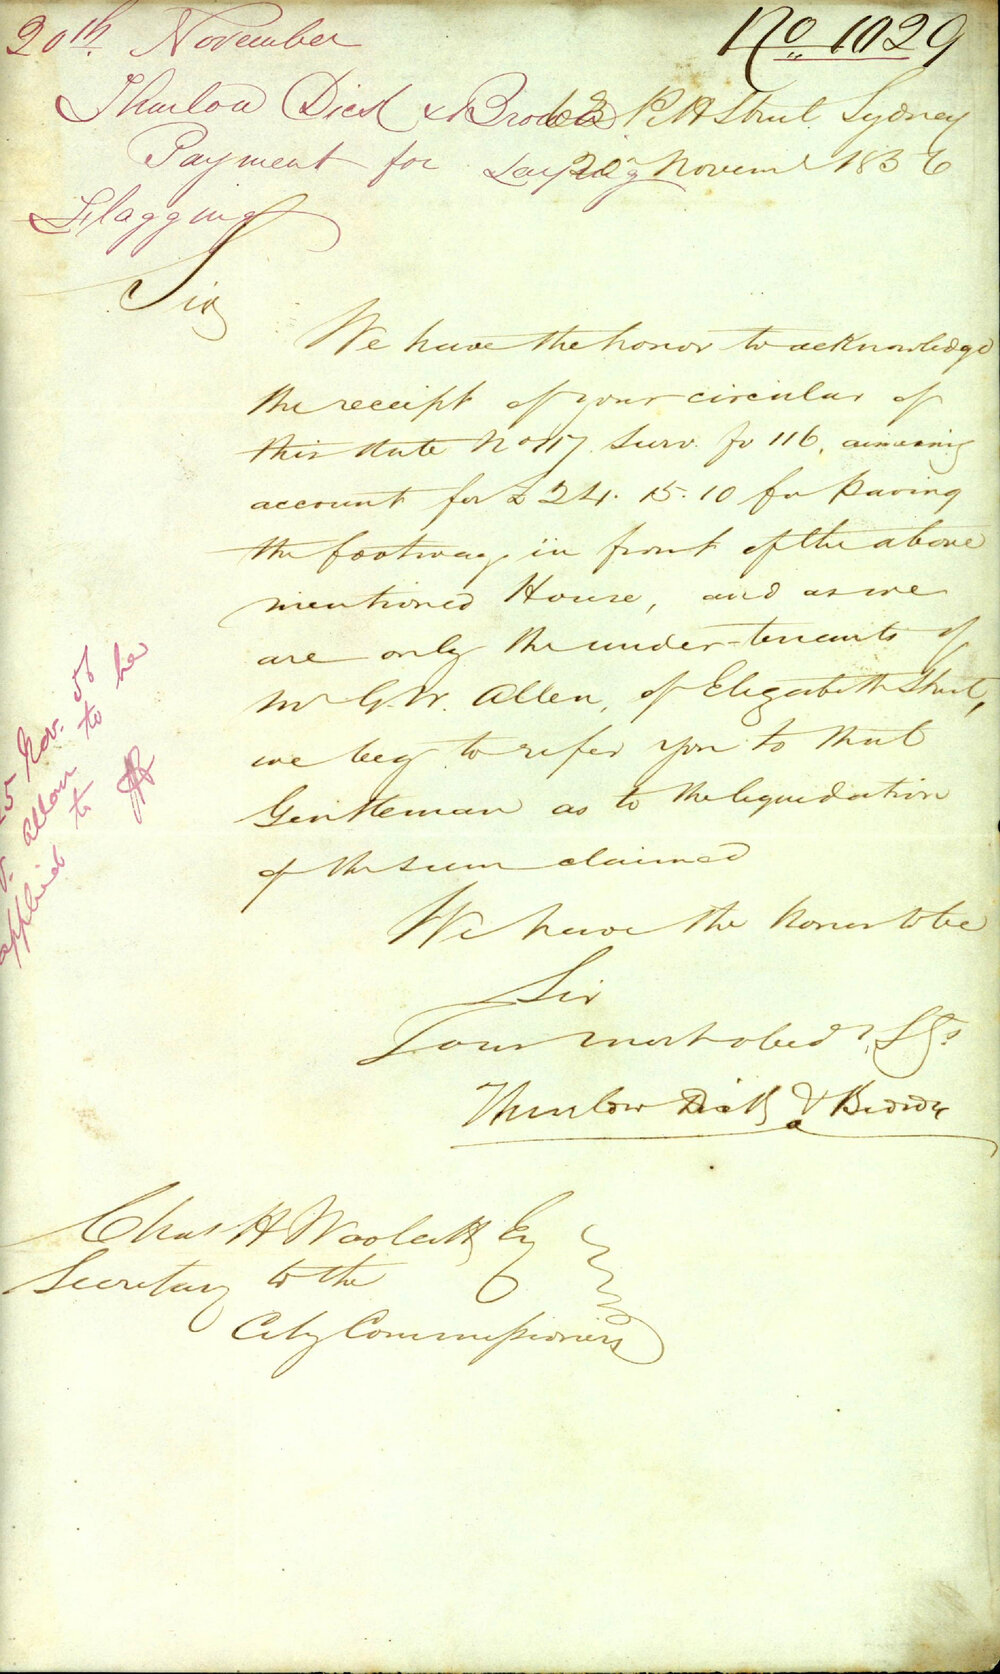 No 1029
20th November
Thurlow Dick & Brooks
Payment for Laying
Flagging
Pitt Street Sydney
20 Novemr 1856
Sir
We have the honor to acknowledge
the receipt of your circular of
this date No 117 Surv. fo 116,
account for £24.15.10 for paving
the footway in front of the above
mentioned House, and as we
are only the under-tenants of
Mr G.W. Allen, of Elizabeth Street,
we beg to refer you to that
Gentleman as to the liquidation
of the sum claimed
We have the honor to be
Sir
Your most obedt Sts
Thurlow Dick &
Chas H Woolcott Esq
Secretary to the
City Commissioners
25 Nov. 56
Allen to be
applied to